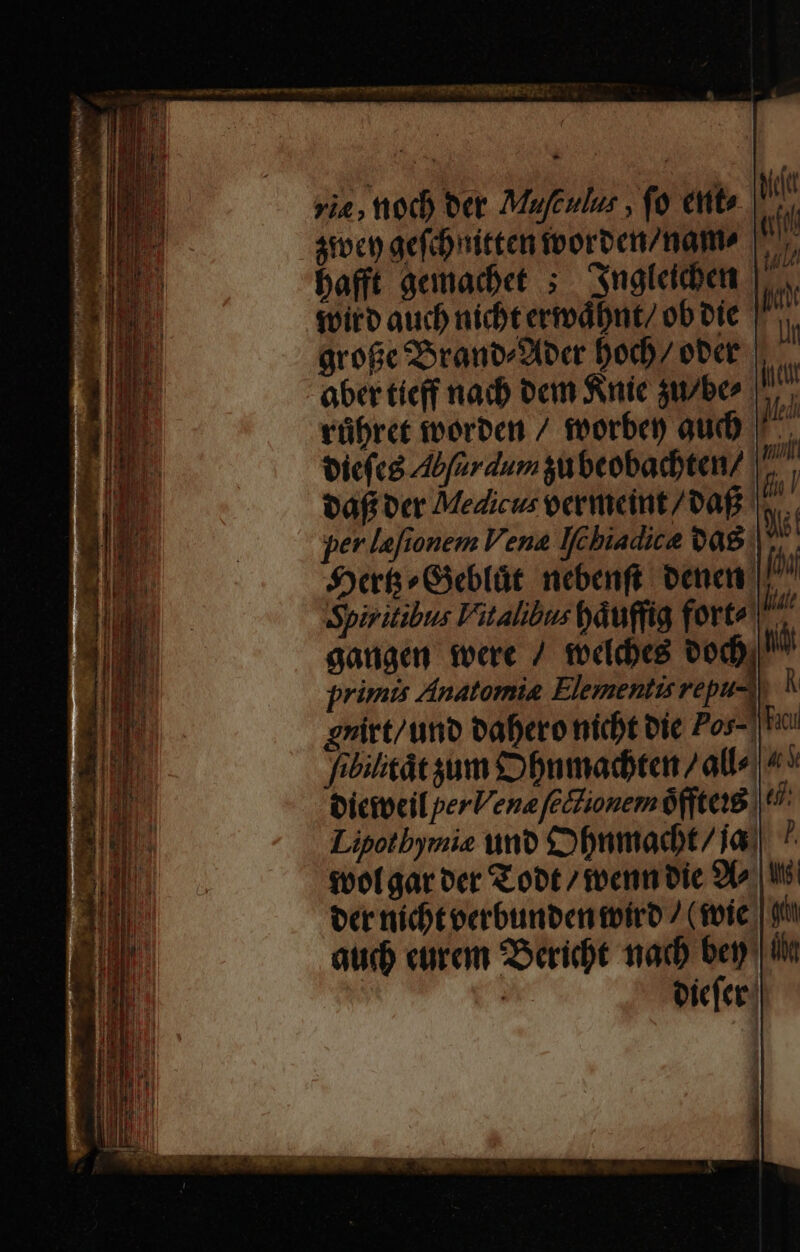 riæ, noch der Muſculus, ſo ent⸗
zwey geſchnitten worden/nam⸗
hafft gemachet ; Ingleichen
wird auch nicht erwaͤhnt/ ob die
große Brand⸗Ader hoch/ oder
aber tieff nach dem Knie zu/be⸗
ruͤhret worden / worbey auch
dieſes Abſurdum zu beobachten/
daß der Medicus vermeint /daß
per læſionem Venæ Iſchiadicæ das
Hertz⸗Gebluͤt nebenſt denen
Spiritibus Vitalibus haͤuffig fort⸗
gangen were / welches doch
primis Anatomiæ Elementis repu-
gnirt/und dahero nicht die Pos-
ſibilitaͤt zum Ohnmachten /all⸗
dieweil per Venæ ſectionem oͤffters
Lipothymiæ und Ohnmacht/ja
wol gar der Todt /wenn die A⸗
der nicht verbunden wird / (wie
auch eurem Bericht nach bey
dieſer